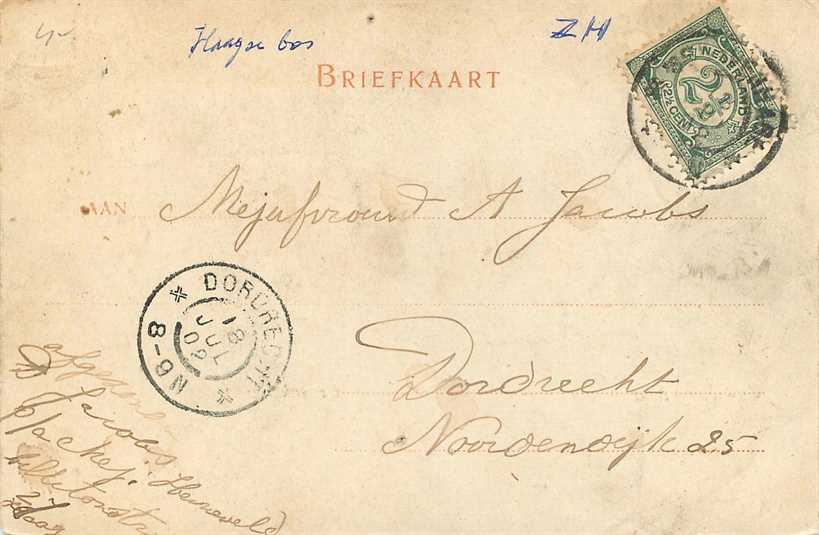 Haagse bos
ZH
BRIEFKAART
NEDERLAND
2 1/2
2½ CENT
AAN Mejufvroud A Jacobs
DORDRECHT
18 JUL 09
8-9 N
Dordrecht
Noordendijk 25
Jacobs
p/a Mej. Heineveld
Haag